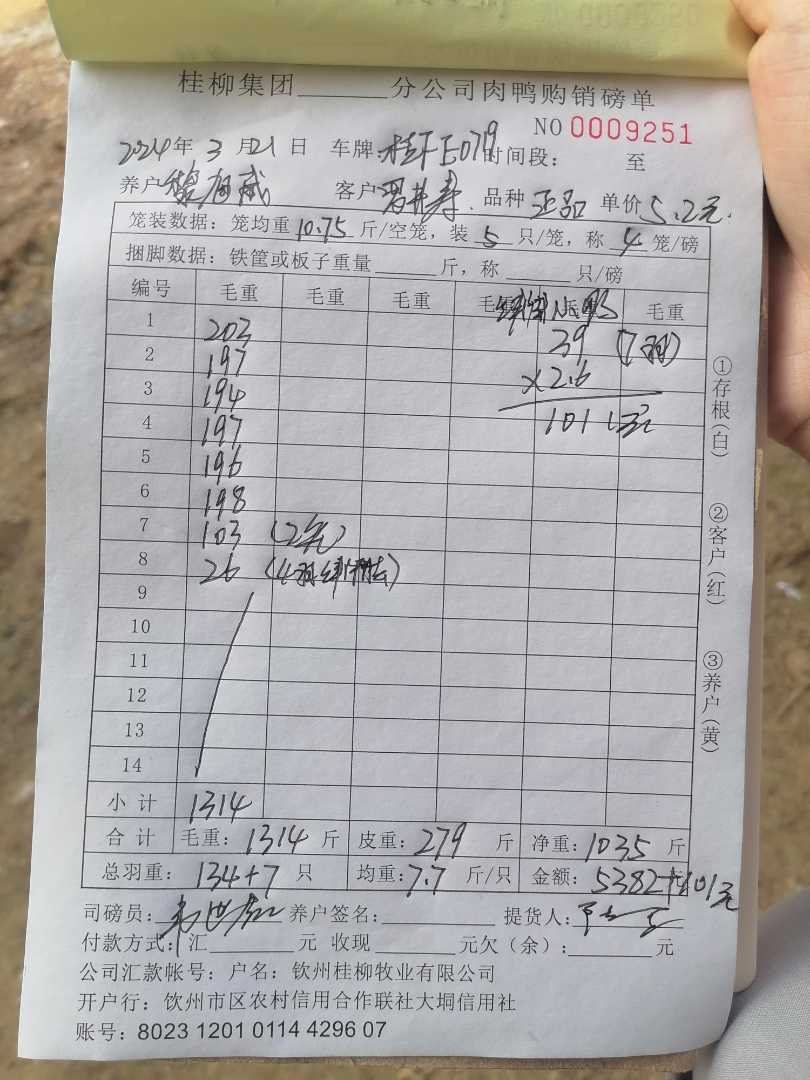 桂柳集团______分公司肉鸭购销磅单
NO 0009251
2024年 3 月 21 日 车牌: 桂 E079 时间段: 至
养户 客户 品种 正品 单价 5.2元.
笼装数据: 笼均重 10.75 斤/空笼, 装 5 只/笼, 称 4 笼/磅
捆脚数据: 铁筐或板子重量______斤, 称______只/磅
编号 毛重 毛重 毛重 毛重 毛重 毛重
1 203 39 (7羽)
2 197 ×2.6
3 194 101元
4 197
5 196
6 198
7 103 (2笼)
8 26 (4羽)
9
10
11
12
13
14
小 计 1314
合 计 毛重: 1314 斤 皮重: 279 斤 净重: 1035 斤
总羽重: 134+7 只 均重: 7.7 斤/只 金额: 5382+101元
司磅员: 养户签名:______ 提货人:
付款方式: 汇______元 收现______元欠(余):______元
公司汇款帐号: 户名: 钦州桂柳牧业有限公司
开户行: 钦州市区农村信用合作联社大垌信用社
账号: 8023 1201 0114 4296 07
①存根(白)
②客户(红)
③养户(黄)